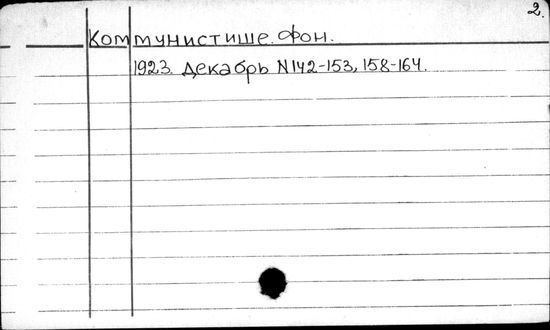 2.
Коммунистише. Фон.
1923. Декабрь N142-153, 158-164.